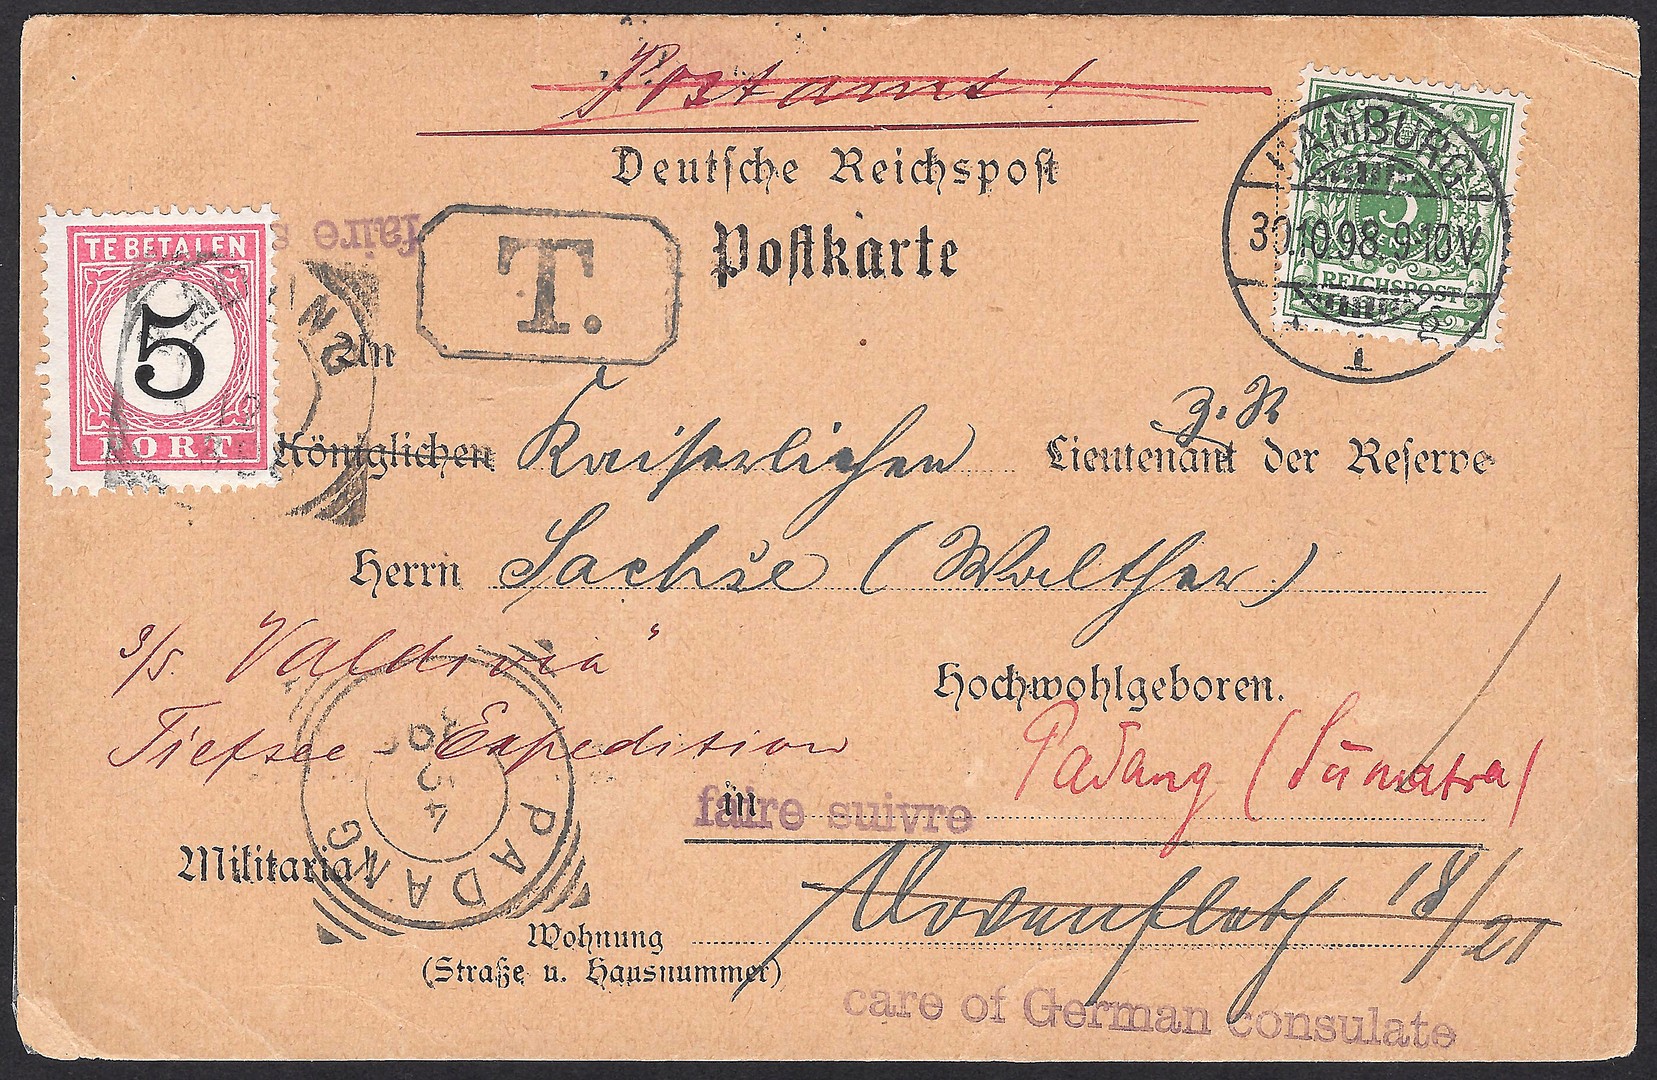 Postamt!
Deutsche Reichspost
Postkarte
HAMBURG
30.10.98. 9-10V.
1
5
PFENNIG
REICHSPOST
TE BETALEN
5
PORT
faire s
T.
An
Königlichen Kaiserlichen Lieutenant z. S. der Reserve
Herrn Sachse (Walther)
Hochwohlgeboren.
s/s. Valdivia"
Tiefsee-Expedition
Padang (Sumatra)
in
faire suivre
PADANG
Militaria!
18/21
Wohnung
(Straße u. Hausnummer)
care of German consulate